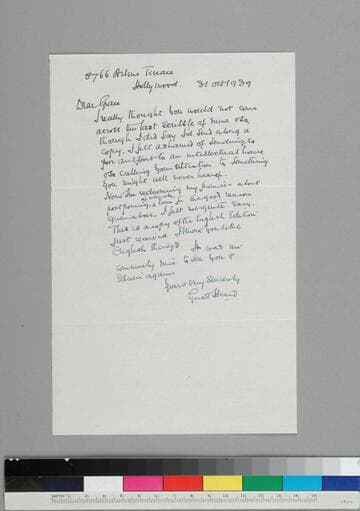 8766 Arlene Terrace
Hollywood. 31 Oct 1939
Dear Grace
I really thought you would not come
across the last scribble of mine & so,
though I did say I'd send along a
copy, I felt ashamed of sending so
poor an effort to an intellectual house
& so calling your attention to something
you might well never hear of.
Now I'm redeeming my promise - about
postponing, for the good reason
given above, I felt not quite easy.
This is a copy of the English Edition
just received. I know you like
English things. It was im-
mensely nice to see you &
Edwin again.
Yours very sincerely
Gerald Heard